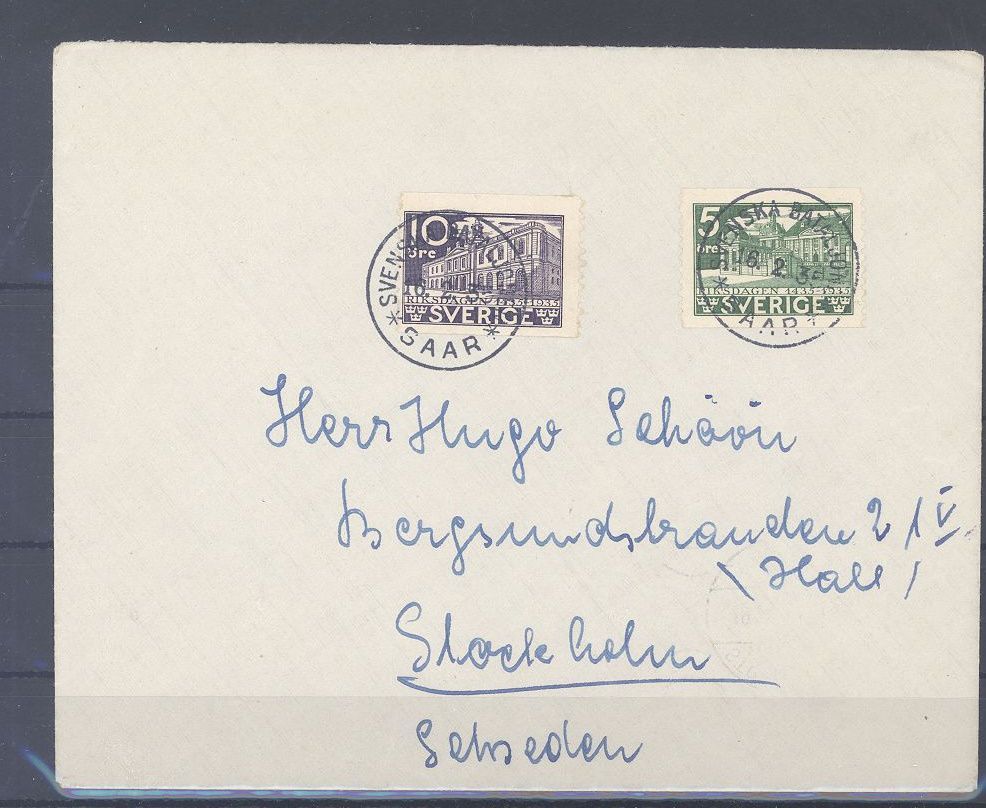 10
öre
RIKSDAGEN 1435-1935
SVERIGE
SVENSKA
16. 2. 35
* SAAR *
5
öre
RIKSDAGEN 1435-1935
SVERIGE
SVENSKA BATALJON
16. 2. 35
* SAAR *
Herr Hugo Schöön
Bergsundstranden 2 / V
(Hall)
Stockholm
Schweden